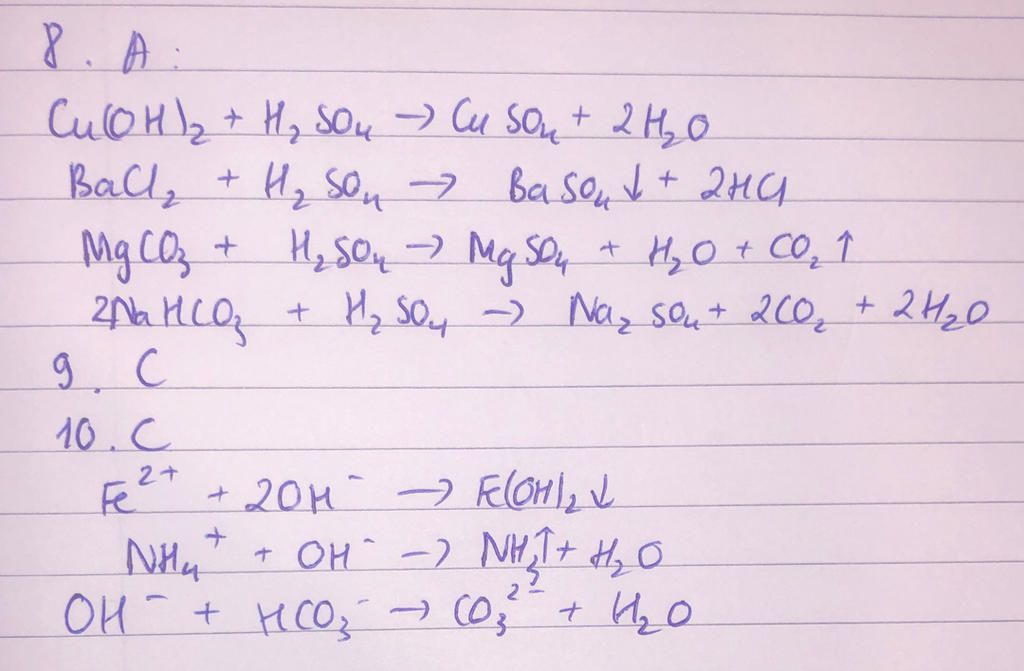 8. A:
Cu(OH)₂ + H₂SO₄ → CuSO₄ + 2H₂O
BaCl₂ + H₂SO₄ → BaSO₄↓ + 2HCl
MgCO₃ + H₂SO₄ → MgSO₄ + H₂O + CO₂↑
2NaHCO₃ + H₂SO₄ → Na₂SO₄ + 2CO₂ + 2H₂O
9. C
10. C
Fe²⁺ + 2OH⁻ → Fe(OH)₂↓
NH₄⁺ + OH⁻ → NH₃↑ + H₂O
OH⁻ + HCO₃⁻ → CO₃²⁻ + H₂O